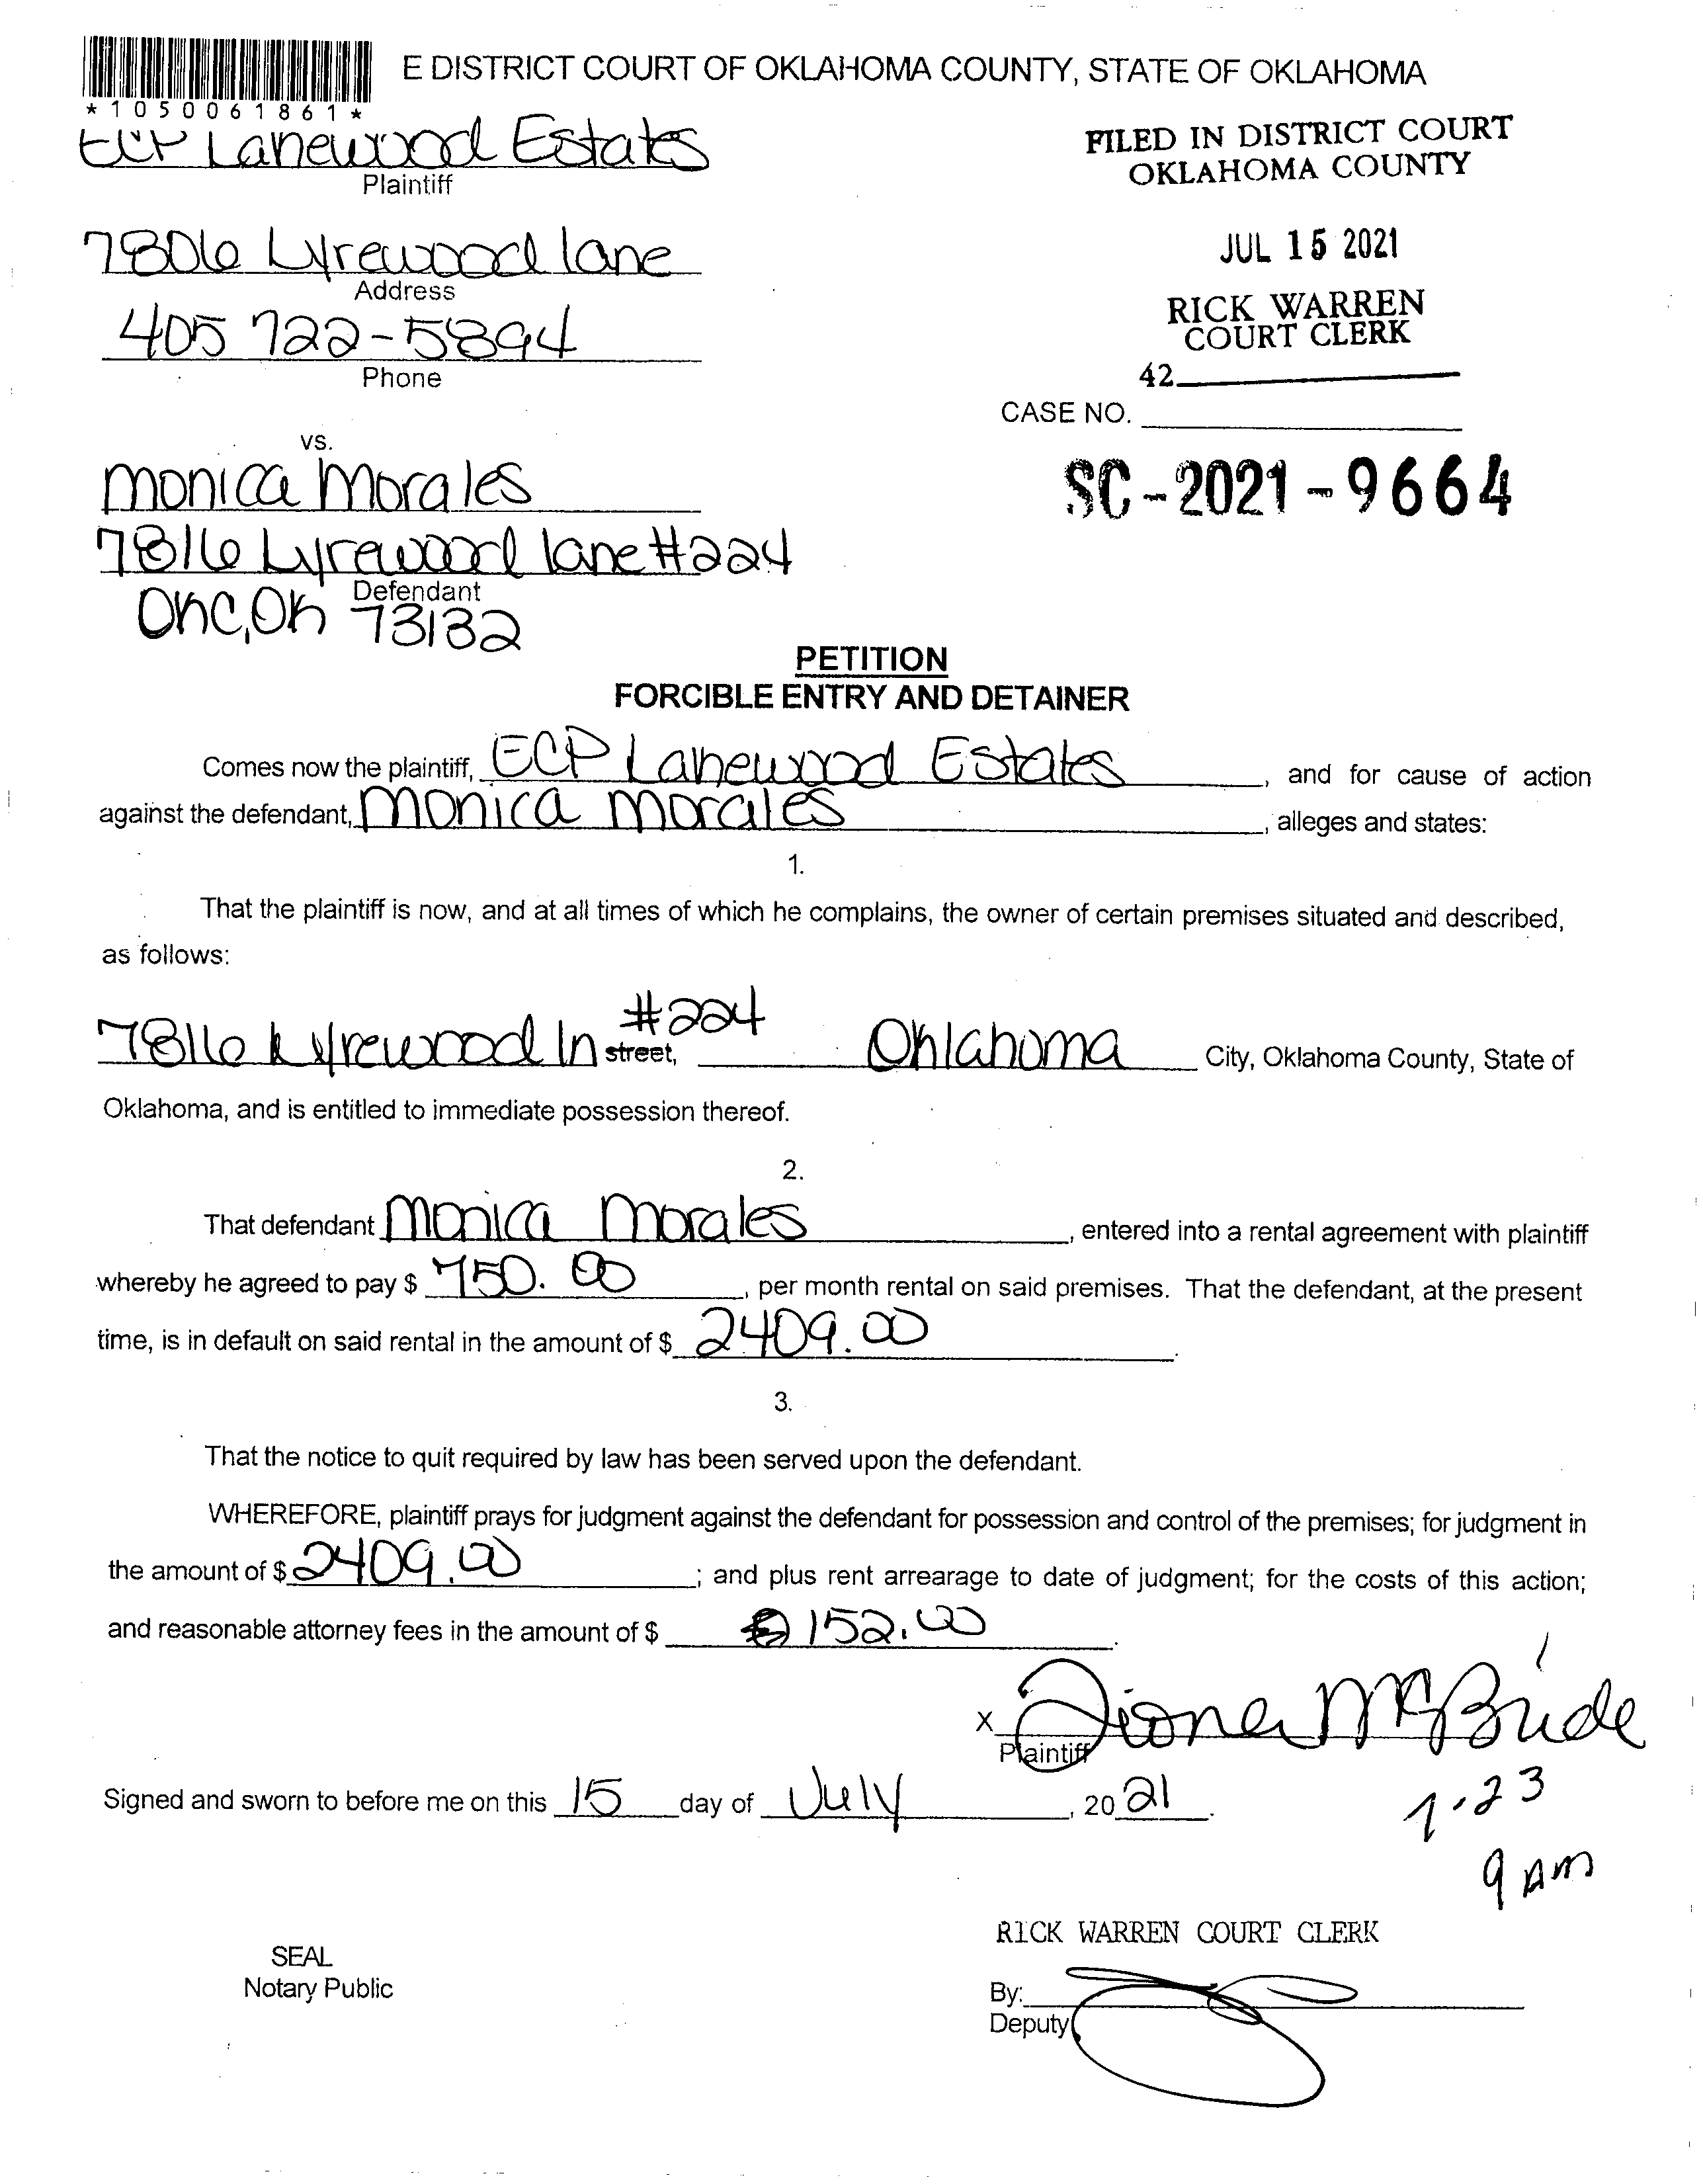 E DISTRICT COURT OF OKLAHOMA COUNTY, STATE OF OKLAHOMA
*1050061861*
ECP Lanewood Estates
Plaintiff
FILED IN DISTRICT COURT
OKLAHOMA COUNTY
7806 Lyrewood lane
Address
JUL 15 2021
405 722-5894
Phone
RICK WARREN
COURT CLERK
42
CASE NO.
vs.
Monica Morales
SC-2021-9664
7816 Lyrewood lane #224
Defendant
OKC, OK 73132
PETITION
FORCIBLE ENTRY AND DETAINER
Comes now the plaintiff, ECP Lanewood Estates, and for cause of action
against the defendant, Monica Morales, alleges and states:
1.
That the plaintiff is now, and at all times of which he complains, the owner of certain premises situated and described,
as follows:
7816 Lyrewood ln #224 street, Oklahoma City, Oklahoma County, State of
Oklahoma, and is entitled to immediate possession thereof.
2.
That defendant Monica Morales, entered into a rental agreement with plaintiff
whereby he agreed to pay $ 750.00, per month rental on said premises. That the defendant, at the present
time, is in default on said rental in the amount of $ 2409.00.
3.
That the notice to quit required by law has been served upon the defendant.
WHEREFORE, plaintiff prays for judgment against the defendant for possession and control of the premises; for judgment in
the amount of $ 2409.00; and plus rent arrearage to date of judgment; for the costs of this action;
and reasonable attorney fees in the amount of $ 152.00.
X McBride
Plaintiff
Signed and sworn to before me on this 15 day of July, 2021.
7.23
9 AM
RICK WARREN COURT CLERK
SEAL
Notary Public
By:
Deputy